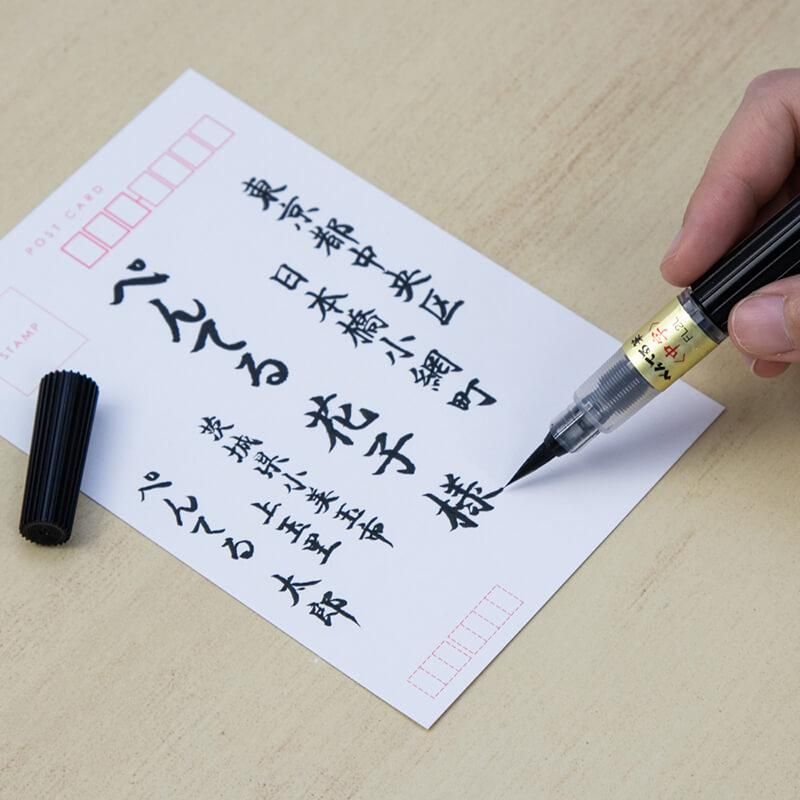 POST CARD
STAMP
東京都中央区
日本橋小網町
ぺんてる 花子 様
茨城県小美玉市
上玉里
ぺんてる 太郎
ぺんてる筆
〈中字〉
FL2L